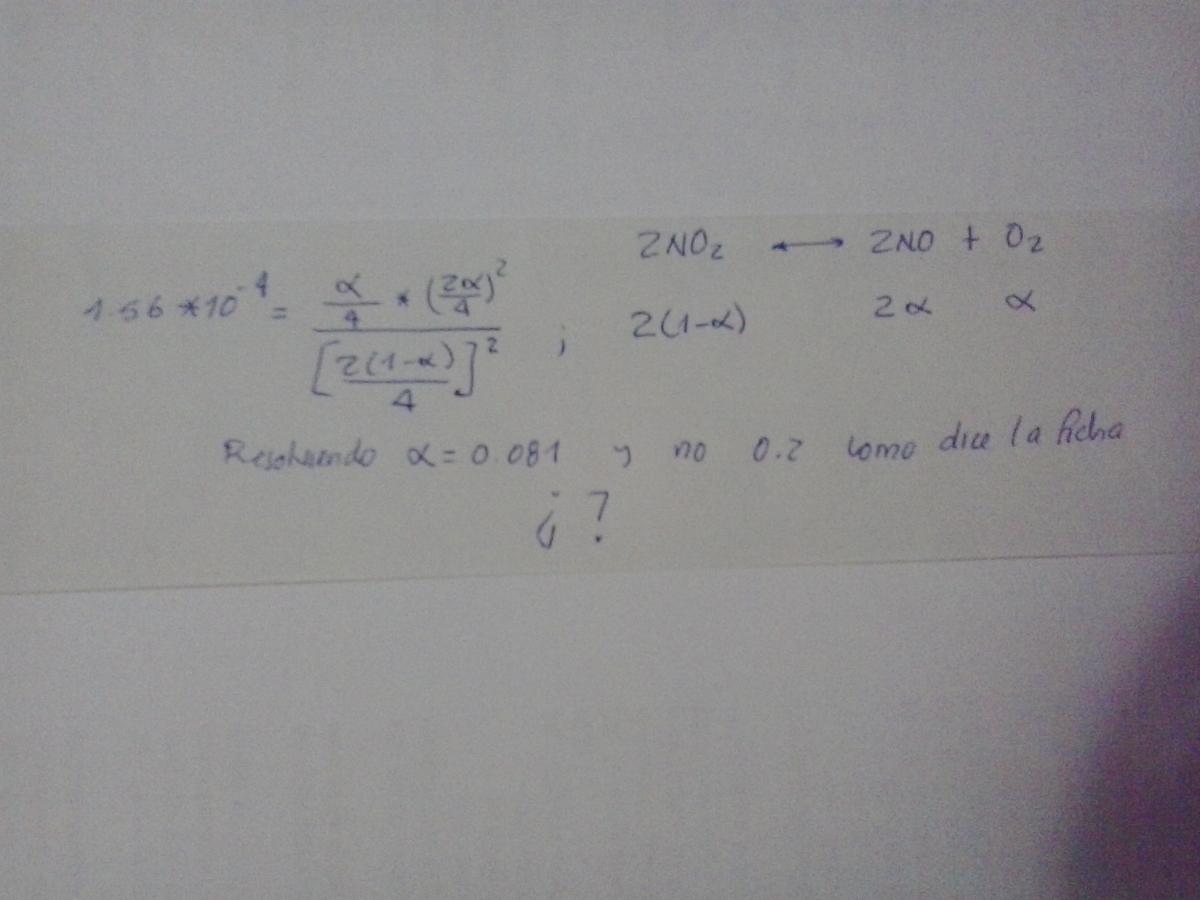 2NO₂ ⟷ 2NO + O₂
1.56 * 10⁻⁴ = (α/4 * (2α/4)²) / [2(1-α)/4]² ; 2(1-α) 2α α
Resolviendo α = 0.081 y no 0.2 como dice la ficha
¿ ?